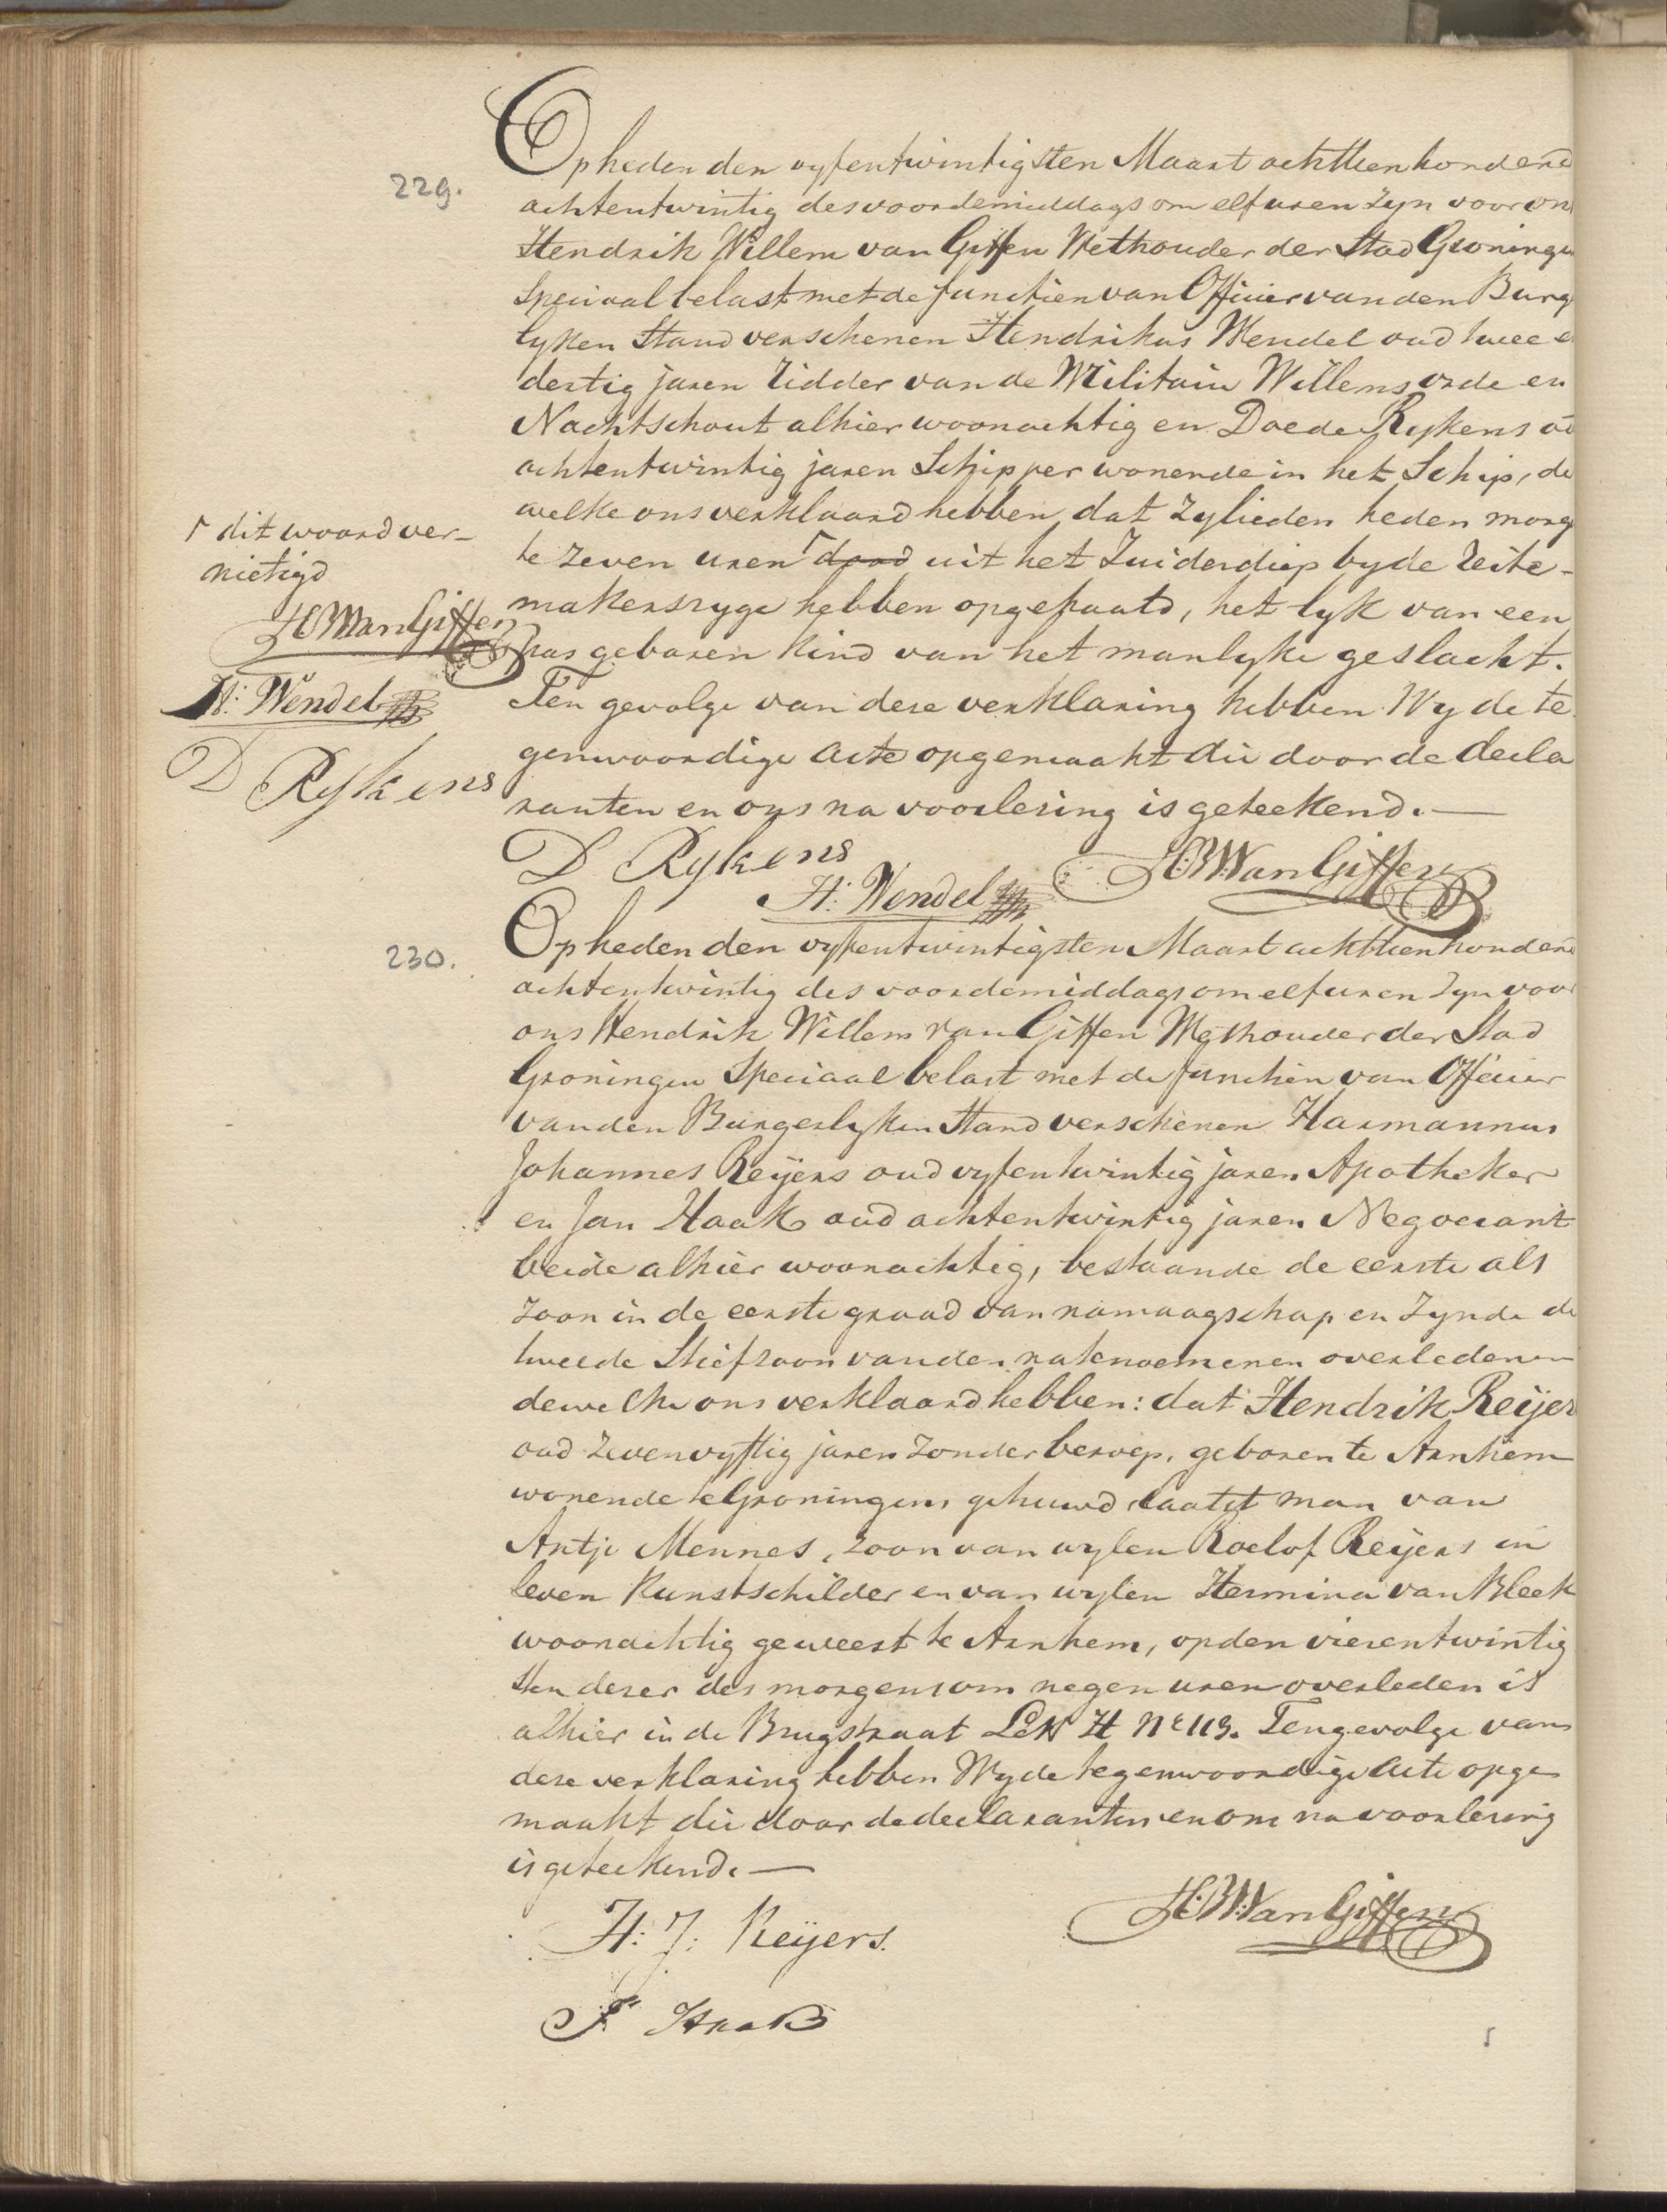 229.
Op heden den vyfentwintigsten Maart achttienhonderd
achtentwintig des voordemiddags om elf uren zyn voor ons
Hendrik Willem van Giffen Wethouder der Stad Groningen
Speciaal belast met de functien van Officier van den Burg
lyken Stand verschenen Hendrikus Wendel oud twee e
dertig jaren Ridder van de Militaire Willemsorde en
Nachtschout alhier woonachtig en Doede Rykens o
achtentwintig jaren Schipper wonende in het Schip, de
welke ons verklaard hebben dat zylieden heden morg
te zeven uren ┌ dood uit het Zuiderdiep by de Reite-
makersryge hebben opgehaald, het lyk van een
pas geboren kind van het manlyke geslacht.
Ten gevolge van deze verklaring hebben Wy de te
genwoordige Acte opgemaakt die door de decla
ranten en ons na voorlezing is geteekend. —
┌ dit woord ver-
nietigd
HW Van Giffen
H: Wendel
D Rykens
D Rykens
H: Wendel
HW Van Giffen
230.
Op heden den vyfentwintigsten Maart achttienhonderd
achtentwintig des voordemiddags om elf uren zyn voor
ons Hendrik Willem van Giffen Wethouder der Stad
Groningen Speciaal belast met de functien van Officier
van den Burgerlyken Stand verschenen Harmannus
Johannes Reijers oud vyfentwintig jaren Apotheker
en Jan Haak oud achtentwintig jaren Negociant
beide alhier woonachtig, bestaande de eerste als
zoon in de eerste graad van namaagschap en zynde de
tweede Stiefzoon van den natenoemenen overledenen
dewelke ons verklaard hebben: dat Hendrik Reijer
oud zevenvyftig jaren zonder beroep, geboren te Arnhem
wonende te Groningen, gehuwd, laatst man van
Antje Mennes, zoon van wylen Roelof Reijers in
leven Kunstschilder en van wylen Hermina van Bleek
woonachtig geweest te Arnhem, op den vierentwintig
sten dezer des morgens om negen uren overleden is
alhier in de Brugstraat Letr H No 119. Ten gevolge van
deze verklaring hebben Wy de tegenwoordige Acte opge
maakt die door de declaranten en ons na voorlezing
is geteekend. —
H: J: Reijers.
HW Van Giffen
J Haak